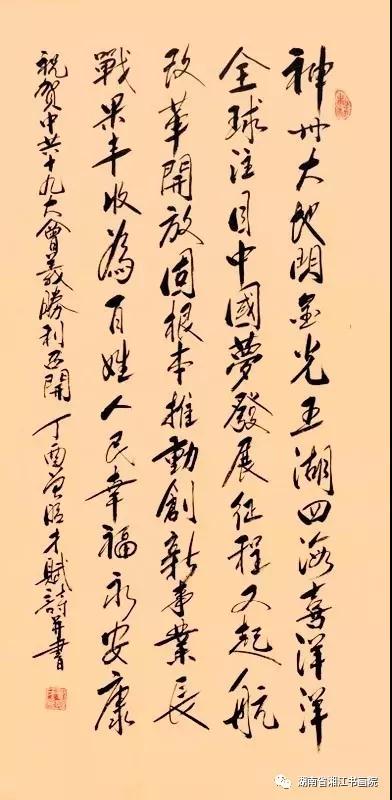 神州大地閃金光五湖四海喜洋洋
全球注目中國夢發展征程又起航
改革開放固根本推動創新事業長
戰果丰收為百姓人民幸福永安康
祝賀中共十九大會義勝利召開 丁酉曾昭才賦詩并書
湖南省湘江书画院